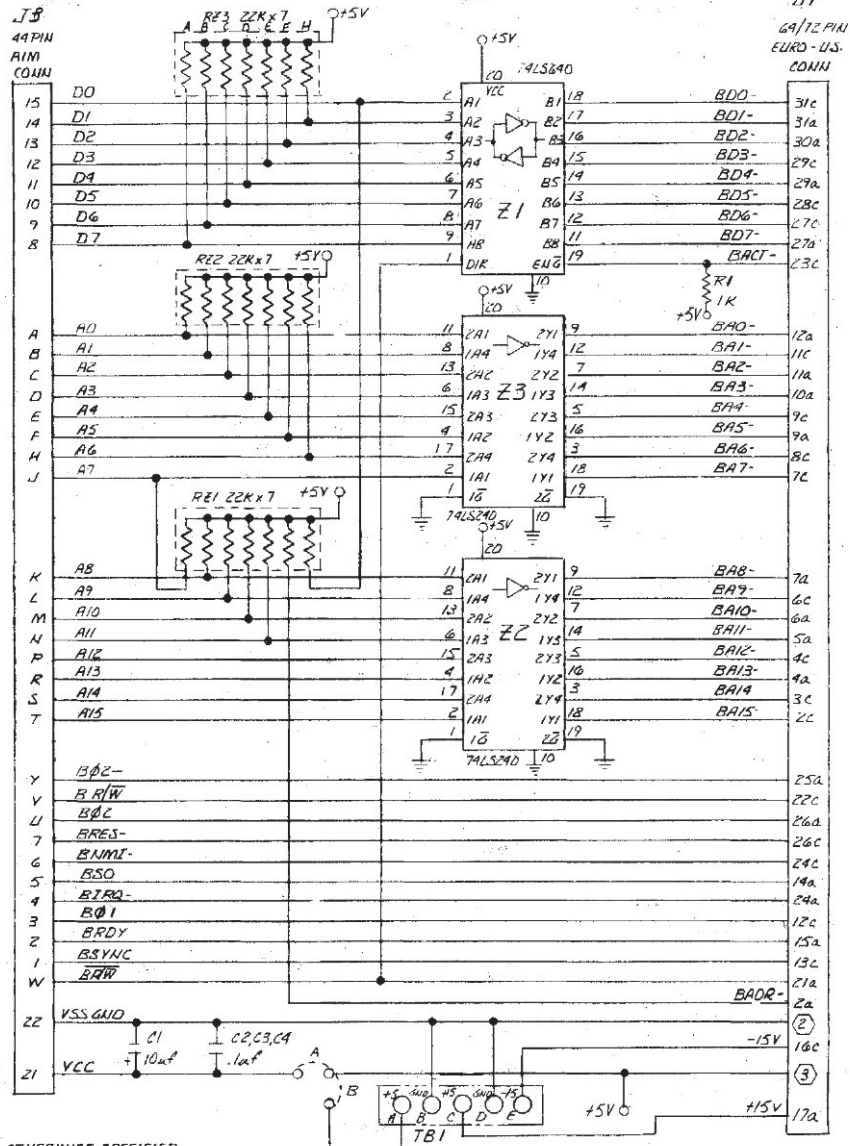 J3
44 PIN
AIM
CONN
RZ3 22K x 7
A B C D E F H
+5V
+5V
74LS640
64/72 PIN
EURO-U.S.
CONN
20
VCC
15 D0 2 A1 B1 18 BD0- 31c
14 D1 3 A2 B2 17 BD1- 31a
13 D2 4 A3 B3 16 BD2- 30a
12 D3 5 A4 B4 15 BD3- 29c
11 D4 6 A5 B5 14 BD4- 29a
10 D5 7 A6 B6 13 BD5- 28c
9 D6 8 A7 B7 12 BD6- 27c
8 D7 9 A8 B8 11 BD7- 27a
1 DIR ENG 19 BACT- 23c
Z1
10
RZ2 22K x 7 +5V
+5V
20
R1
1K
+5V
A A0 11 2A1 2Y1 9 BA0- 12a
B A1 8 1A4 1Y4 12 BA1- 11c
C A2 13 2A2 2Y2 7 BA2- 11a
D A3 6 1A3 Z3 1Y3 14 BA3- 10a
E A4 15 2A3 2Y3 5 BA4- 9c
F A5 4 1A2 1Y2 16 BA5- 9a
H A6 17 2A4 2Y4 3 BA6- 8c
J A7 2 1A1 1Y1 18 BA7- 7c
1 1G 2G 19
RZ1 22K x 7 +5V
74LS240 10
+5V
20
K A8 11 2A1 2Y1 9 BA8- 7a
L A9 8 1A4 1Y4 12 BA9- 6c
M A10 13 2A2 2Y2 7 BA10- 6a
N A11 6 1A3 Z2 1Y3 14 BA11- 5a
P A12 15 2A3 2Y3 5 BA12- 4c
R A13 4 1A2 1Y2 16 BA13- 4a
S A14 17 2A4 2Y4 3 BA14 3c
T A15 2 1A1 1Y1 18 BA15- 2c
1 1G 2G 19
74LS240 10
Y BØ2- 25a
V B R/W 22c
U BØ2 26a
7 BRES- 26c
6 BNMI- 24c
5 BSO 14a
4 BIRQ- 24a
3 BØ1 12c
2 BRDY 15a
1 BSYNC 13c
W BR/W 21a
BADR- 2a
22 VSS GND 2
C1
+ 10uf
C2,C3,C4
.1uf
-15V 16c
21 VCC A 3
B
+5 GND +5 GND -15
A B C D E
TB1
+5V
+15V 17a